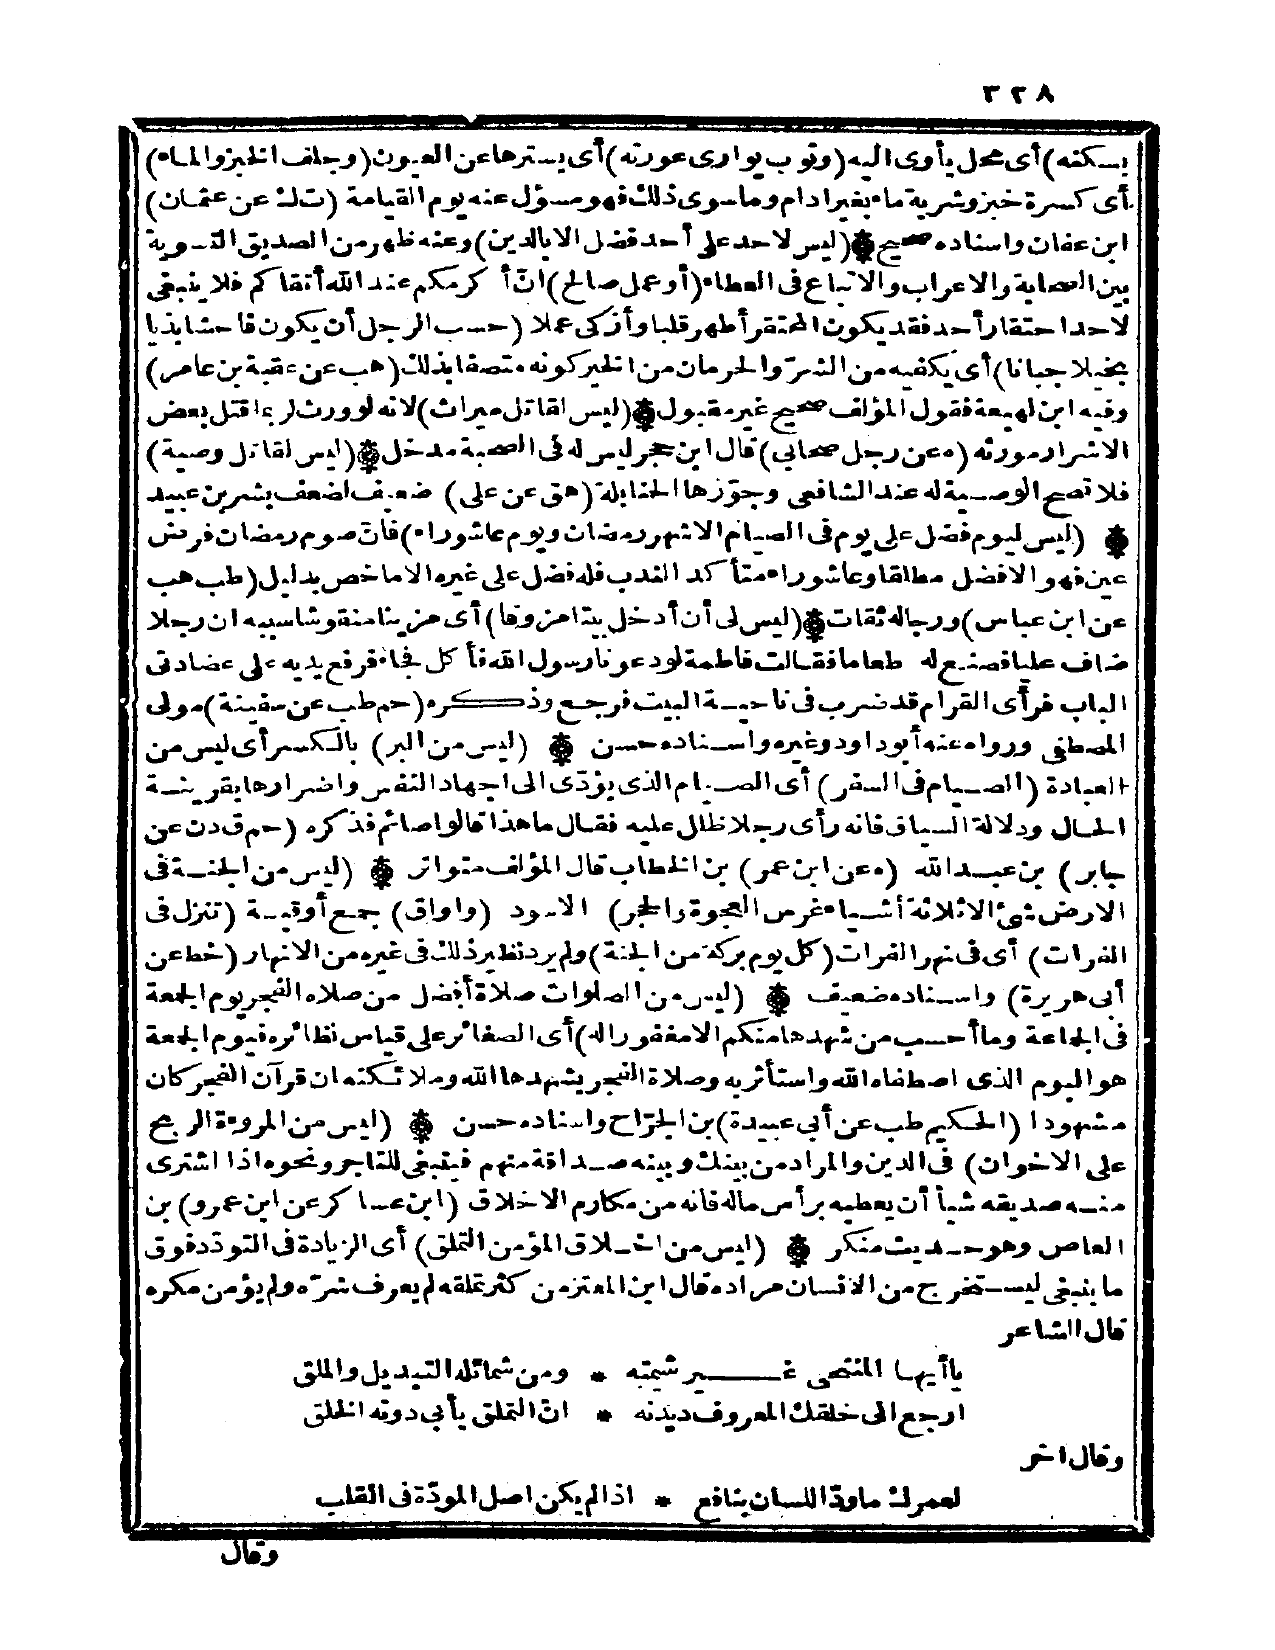 ٣٢٨
يسكنه) أى محل يأوى اليه (وثوب يوارى عورته) أى يسترها عن العيون (وجلف الخبز والماء)
أى كسرة خبز وشربة ماء بغير ادام وما سوى ذلك فهو مسؤل عنه يوم القيامة (ت ك عن عثمان)
ابن عفان واسناده صحيح ۞ (ليس لاحد على أحد فضل الا بالدين) وعنه ظهر من الصديق التسوية
بين الصحابة والاعراب والاتباع فى العطاء (أو عمل صالح) انّ أكرمكم عند الله أتقاكم فلا ينبغى
لاحد احتقار أحد فقد يكون المحتقر أطهر قلبا وأزكى عملا (حسب الرجل أن يكون فاحشا بذيا
بخيلا جبانا) أى يكفيه من الشرّ والحرمان من الخير كونه متصفا بذلك (هب عن عقبة بن عامر)
وفيه ابن لهيعة فقول المؤلف صحيح غير مقبول ۞ (ليس لقاتل ميراث) لانه لو ورث لربما قتل بعض
الاشرار مورثه (ه عن رجل صحابى) قال ابن حجر ليس له فى الصحبة مدخل ۞ (ليس لقاتل وصية)
فلا تصح الوصية له عند الشافعى وجوّزها الحنابلة (هق عن على) ضعيف لضعف بشر بن عبيد
۞ (ليس ليوم فضل على يوم فى الصيام الا شهر رمضان ويوم عاشوراء) فانّ صوم رمضان فرض
عين فهو الافضل مطلقا وعاشوراء متأكد الندب فله فضل على غيره الا ما خص بدليل (طب هب
عن ابن عباس) ورجاله ثقات ۞ (ليس لى أن أدخل بيتا مزوقا) أى مزينا منقوشا سببه ان رجلا
ضاف عليا فصنع له طعاما فقالت فاطمة لو دعونا رسول الله فأكل فجاء فرفع يديه على عضادتى
الباب فرأى القرام قد ضرب فى ناحية البيت فرجع وذكره (حم طب عن سفينة) مولى
المصطفى ورواه عنه أبو داود وغيره واسناده حسن ۞ (ليس من البر) بالكسر أى ليس من
العبادة (الصيام فى السفر) أى الصيام الذى يؤدّى الى اجهاد النفس واضرارها بقرينة
الحال ودلالة السياق فانه رأى رجلا ظلل عليه فقال ما هذا قالوا صائم فذكره (حم ق د ن عن
جابر) بن عبد الله (ه عن ابن عمر) بن الخطاب قال المؤلف متواتر ۞ (ليس من الجنة فى
الارض شئ الا ثلاثة أشياء غرس العجوة والحجر) الاسود (واواق) جمع أوقية (تنزل فى
الفرات) أى فى نهر الفرات (كل يوم بركة من الجنة) ولم يرد نظير ذلك فى غيره من الانهار (خط عن
أبى هريرة) واسناده ضعيف ۞ (ليس من الصلوات صلاة أفضل من صلاه الفجر يوم الجمعة
فى الجماعة وما أحسب من شهدها منكم الا مغفورا له) أى الصغائر على قياس نظائره فيوم الجمعة
هو اليوم الذى اصطفاه الله واستأثر به وصلاة الفجر يشهدها الله وملائكته ان قرآن الفجر كان
مشهودا (الحكيم طب عن أبى عبيدة) بن الجرّاح واسناده حسن ۞ (ليس من المروءة الربح
على الاخوان) فى الدين والمراد من بينك وبينه صداقة منهم فينبغى للتاجر ونحوه اذا اشترى
منه صديقه شيأ أن يعطيه برأس ماله فانه من مكارم الاخلاق (ابن عساكر عن ابن عمرو) بن
العاص وهو حديث منكر ۞ (ليس من اخلاق المؤمن التملق) أى الزيادة فى التودّد فوق
ما ينبغى ليستخرج من الانسان مراده قال ابن المعتز من كثر تملقه لم يعرف شرّه ولم يؤمن مكره
قال الشاعر
ياأيها المنتحى غير شيمته * ومن شمائله التبديل والملق
ارجع الى خلقك المعروف ديدنه * انّ التملق يأبى دونه الخلق
وقال اخر
لعمرك ماودّ اللسان بنافع * اذا لم يكن اصل المودّة فى القلب
وقال